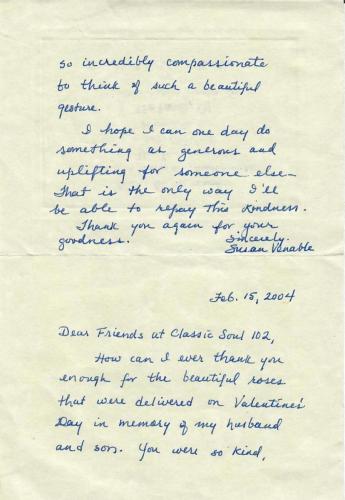 so incredibly compassionate
to think of such a beautiful
gesture.
I hope I can one day do
something as generous and
uplifting for someone else-
That is the only way I'll
be able to repay this kindness.
Thank you again for your
goodness.
Sincerely,
Susan Venable
Feb. 15, 2004
Dear Friends at Classic Soul 102,
How can I ever thank you
enough for the beautiful roses
that were delivered on Valentine's
Day in memory of my husband
and son. You were so kind,